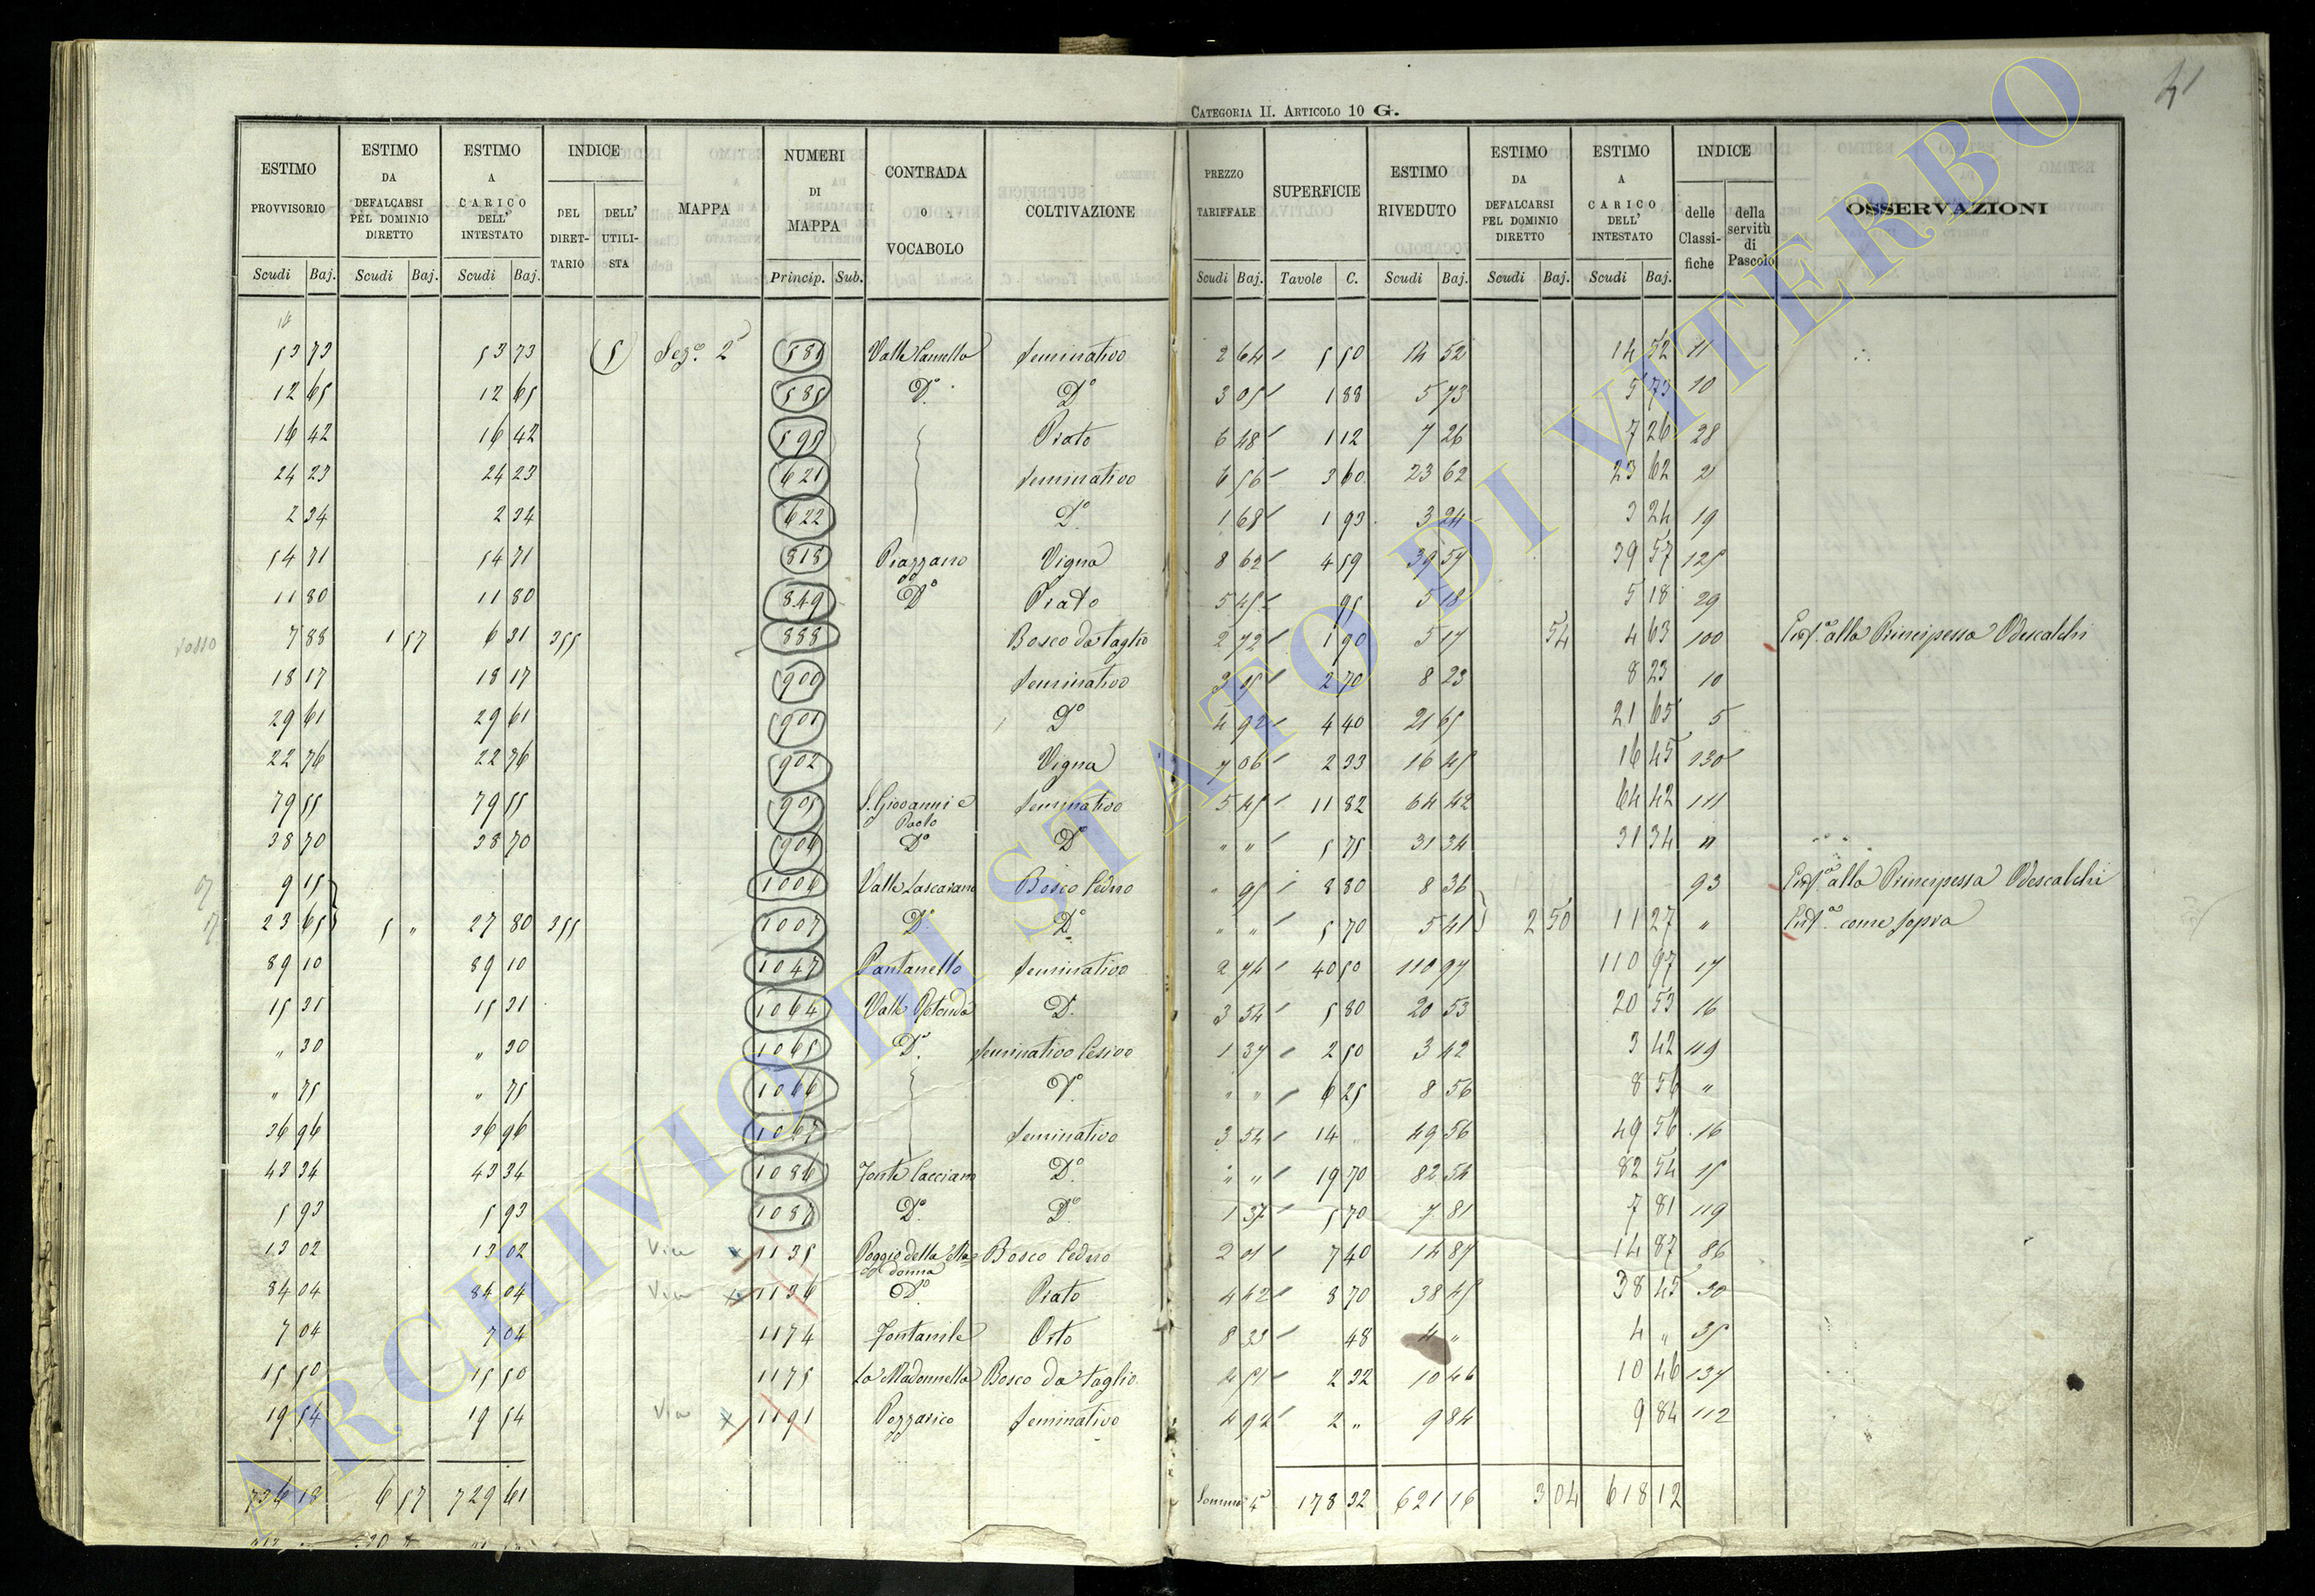 41
CATEGORIA II. ARTICOLO 10 G.
ESTIMO PROVVISORIO Scudi Baj. ESTIMO DA DEFALCARSI PEL DOMINIO DIRETTO Scudi Baj. ESTIMO A CARICO DELL' INTESTATO Scudi Baj. INDICE DEL DIRET-TARIO DELL' UTILI-STA MAPPA NUMERI DI MAPPA Princip. Sub. CONTRADA O VOCABOLO COLTIVAZIONE PREZZO TARIFFALE Scudi Baj. SUPERFICIE Tavole C. ESTIMO RIVEDUTO Scudi Baj. ESTIMO DA DEFALCARSI PEL DOMINIO DIRETTO Scudi Baj. ESTIMO A CARICO DELL' INTESTATO Scudi Baj. INDICE delle Classi-fiche della servitù di Pascolo OSSERVAZIONI
53 73 53 73 5 Sez.e 2 581 Seminativo 2 64 5 50 14 52 14 52 11
12 65 12 65 585 D.o D.o 3 05 1 88 5 73 5 73 10
16 42 16 42 595 Prato 6 48 1 12 7 26 7 26 28
24 23 24 23 621 Seminativo 6 56 3 60 23 62 23 62 2
2 34 2 34 622 D.o 1 68 1 93 3 24 3 24 19
54 71 54 71 818 Piazzano Vigna 8 62 4 59 39 57 39 57 125
11 80 11 80 849 D.o Prato 5 45 95 5 18 5 18 29
7 88 1 57 6 31 355 888 Bosco da taglio 2 72 1 90 5 17 54 4 63 100 alla Principessa Odescalchi
18 17 18 17 900 Seminativo 3 05 2 70 8 23 8 23 10
29 61 29 61 901 D.o 4 92 4 40 21 65 21 65 5
22 76 22 76 902 Vigna 7 06 2 33 16 45 16 45 130
79 55 79 55 903 S. Giovanni e Paolo Seminativo 5 45 11 82 64 42 64 42 111
38 70 38 70 904 D.o D.o " " 5 75 31 34 31 34 "
9 15 1006 Valle Lascarana Bosco Ceduo " 95 8 80 8 36 93 alla Principessa Odescalchi
23 65 5 " 27 80 355 1007 D.o D.o " " 5 70 5 41 2 50 11 27 " come sopra
89 10 89 10 1047 Pantanello Seminativo 2 74 40 50 110 97 110 97 17
15 31 15 31 1064 Valle Rotonda D.o 3 54 5 80 20 53 20 53 16
" 30 " 30 1065 D.o Seminativo Cesivo 1 37 2 50 3 42 3 42 119
" 75 " 75 1066 D.o " " 6 25 8 56 8 56 "
36 96 36 96 1067 Seminativo 3 54 14 " 49 56 49 56 16
43 34 43 34 1086 Fonte Cacciano D.o " " 19 70 82 54 82 54 15
5 93 5 93 1087 D.o D.o 1 37 5 70 7 81 7 81 119
13 02 13 02 1135 Poggio della Madonna Bosco Ceduo 2 01 7 40 14 87 14 87 86
84 04 84 04 1136 D.o Prato 4 42 8 70 38 45 38 45 30
7 04 7 04 1174 Fontanile Orto 8 33 48 4 " 4 " 35
15 50 15 50 1175 La Madonnella Bosco da taglio 4 51 2 32 10 46 10 46 137
19 54 19 54 1191 Pozzarico Seminativo 4 92 2 " 9 84 9 84 112
736 18 6 57 729 61 178 32 621 16 3 04 618 12
ARCHIVIO DI STATO DI VITERBO